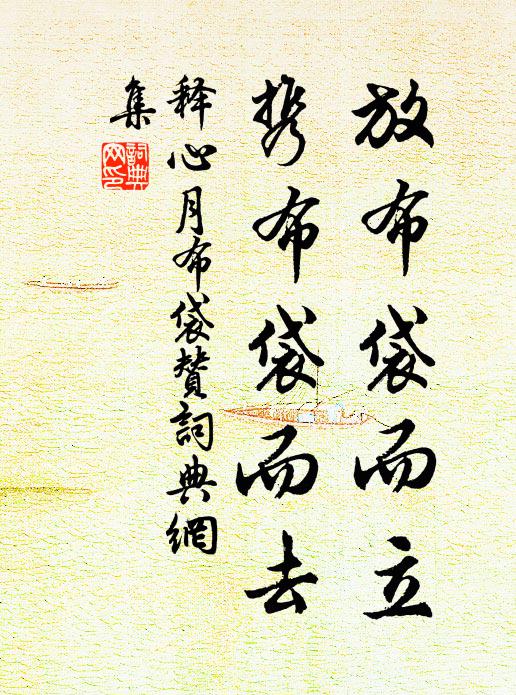 放布袋而立
携布袋而去
释心月布袋赞詞典網
集
詞典
网印